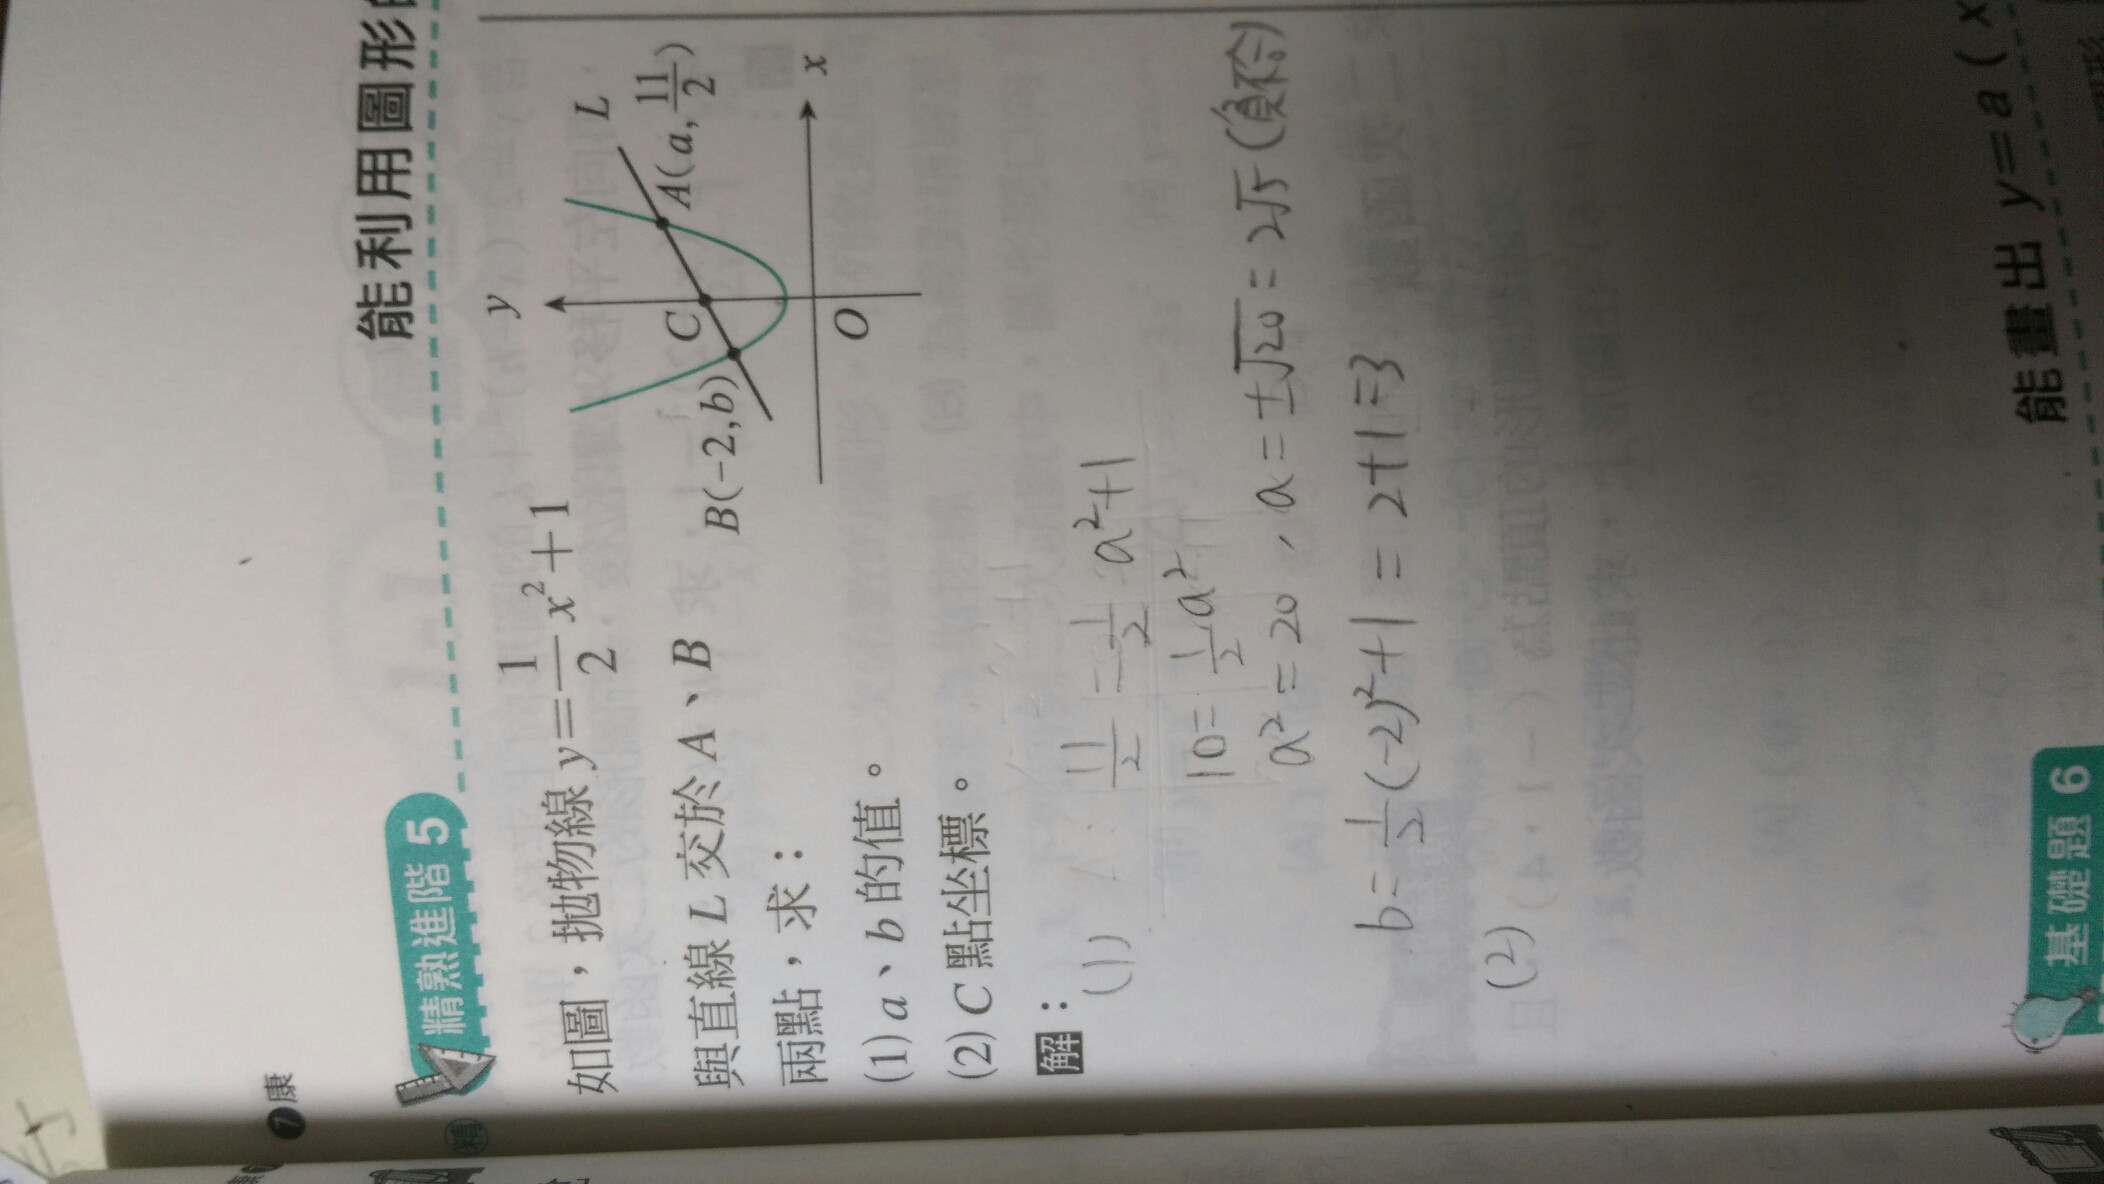 能利用圖形
精熟進階 5
如圖，拋物線 y=\frac{1}{2}x²+1
與直線 L 交於 A、B
兩點，求：
(1) a、b 的值。
(2) C 點坐標。
y
L
A(a, \frac{11}{2})
C
B(−2,b)
O
x
解：
(1) \frac{11}{2} = \frac{1}{2} a²+1
10 = \frac{1}{2} a²
a² = 20，a = ±√20 = 2√5 (負不合)
b = \frac{1}{2}(-2)²+1 = 2+1=3
(2)
基礎題 6
能畫出 y=a(x
康
精